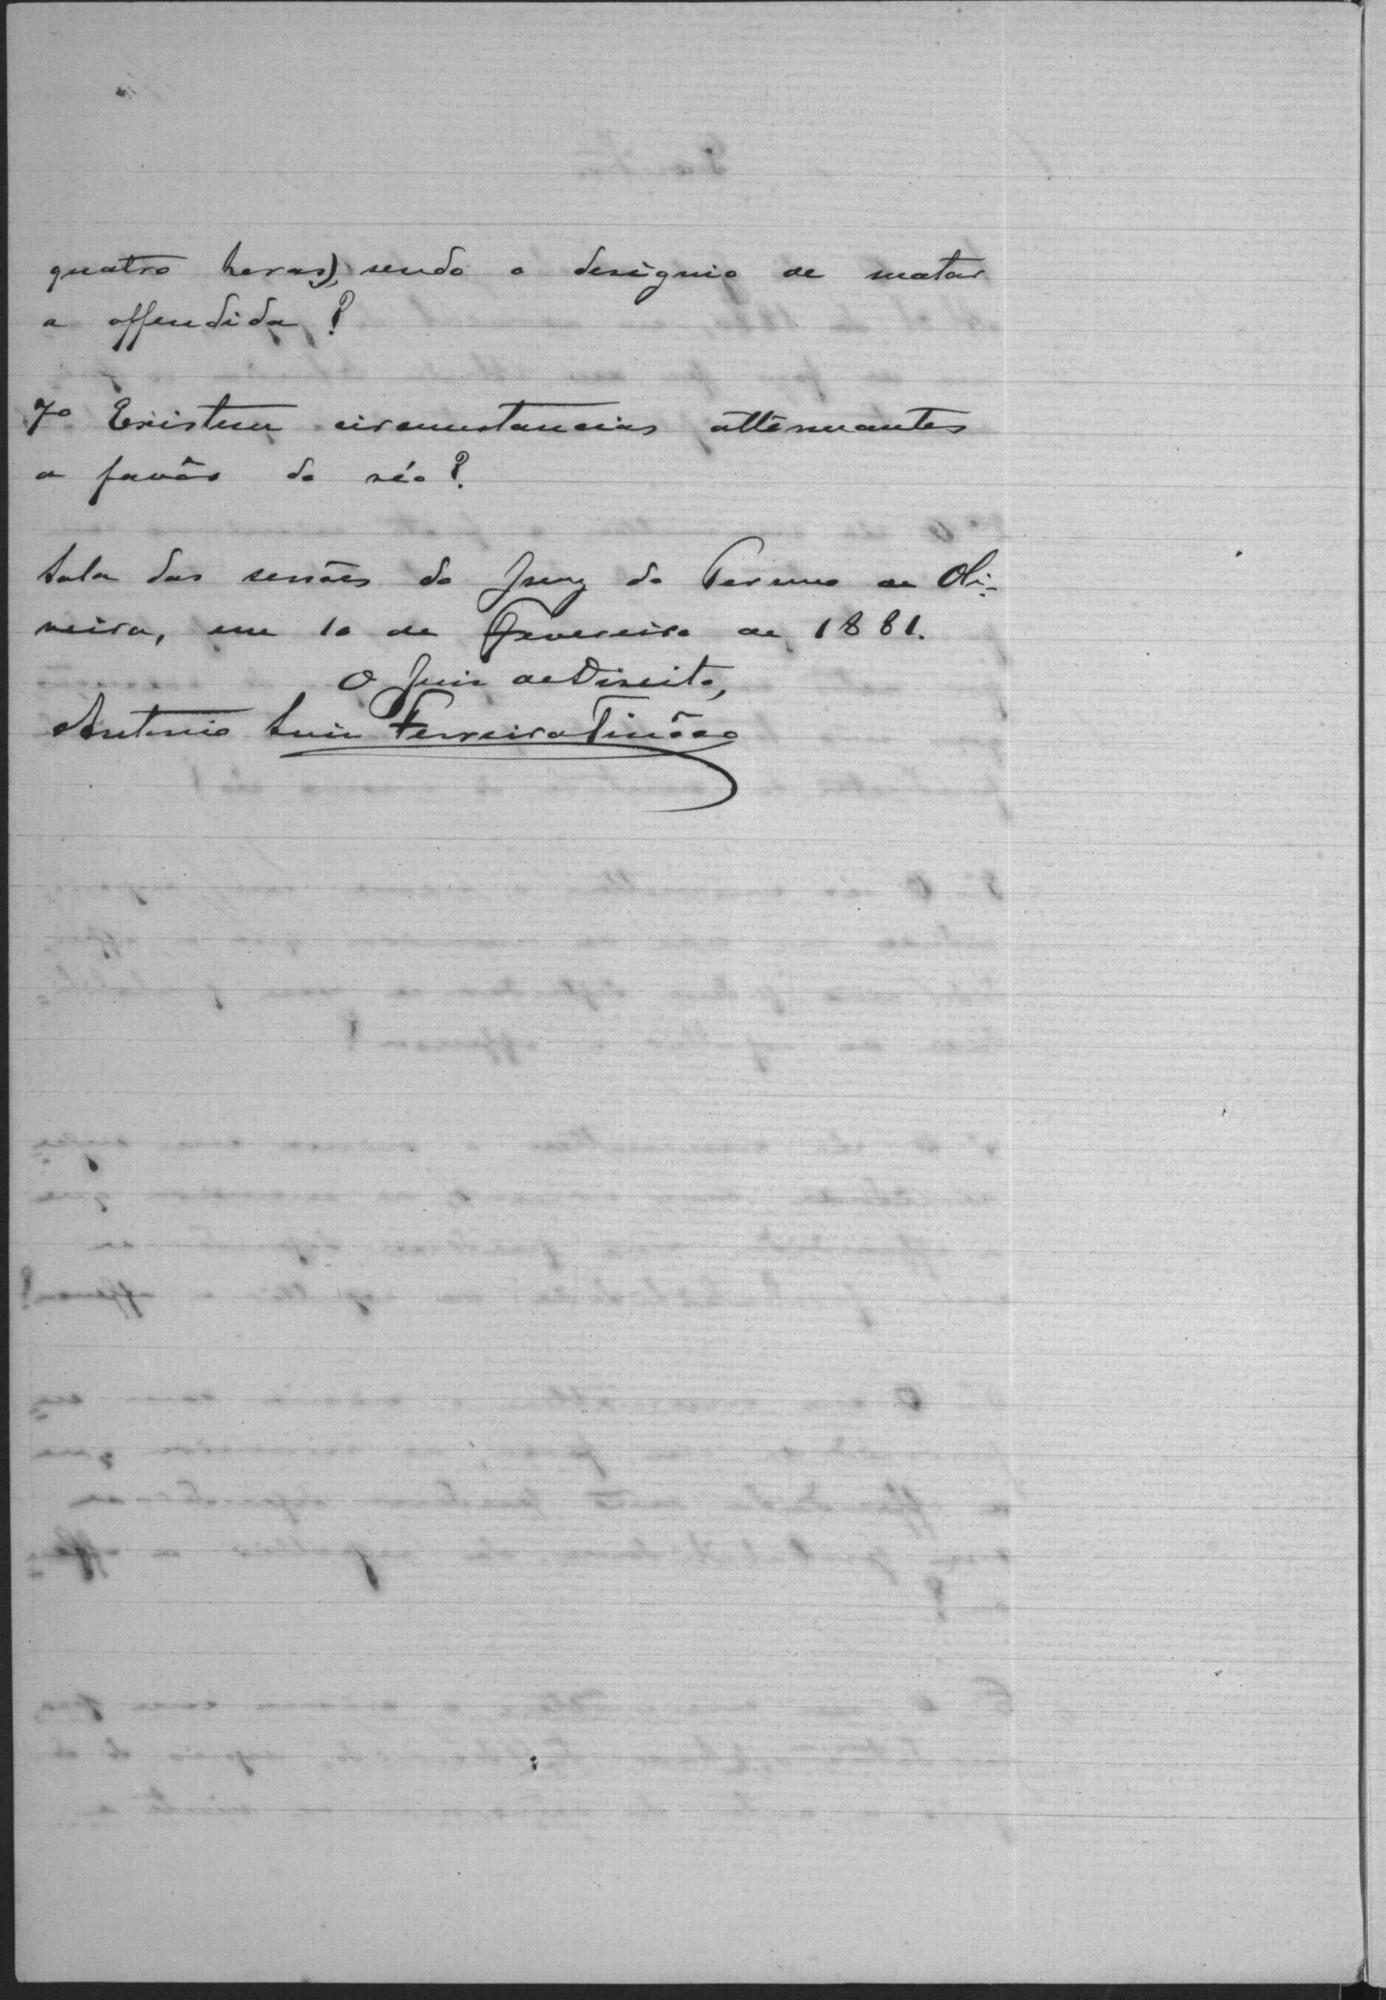 quatro horas), sendo o designio de matar
a offendida?
7º Existem circumstancias attenuantes
a favôr do réo?
Sala das sessões do Jury do Termo de Oli-
veira, em 10 de Fevereiro de 1881.
O Juiz de Direito,
Antonio Luiz Ferreira Tinôco